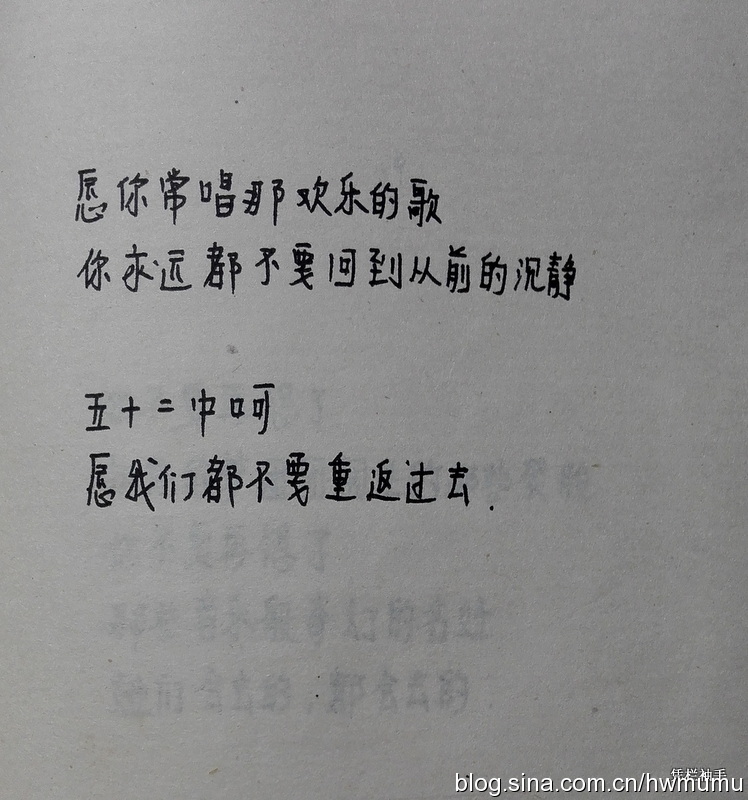 愿你常唱那欢乐的歌
你永远都不要回到从前的沉静
五十二中呵
愿我们都不要重返过去.
凭栏袖手
blog.sina.com.cn/hwmumu